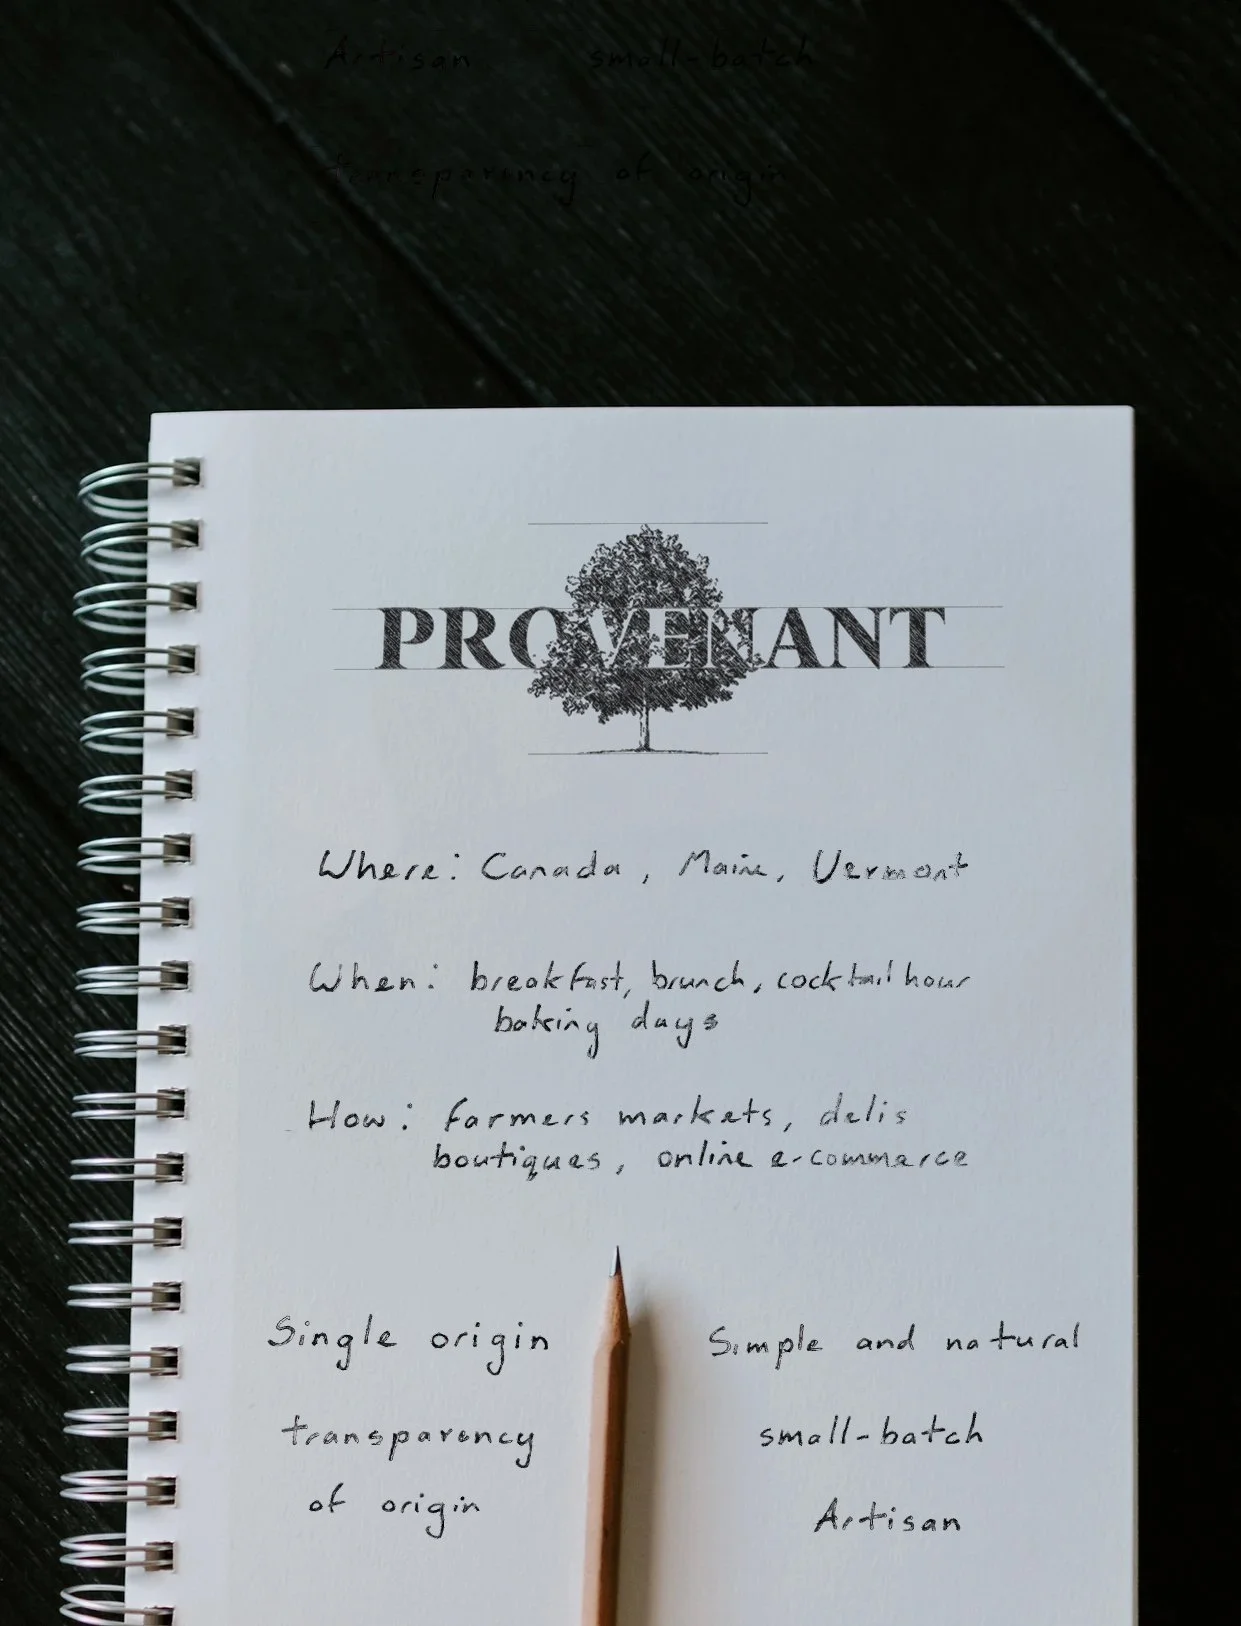 Artisan small-batch
transparency of origin
PROVENANT
Where: Canada, Maine, Vermont
When: breakfast, brunch, cocktail hour
baking days
How: farmers markets, delis
boutiques, online e-commerce
Single origin
transparency
of origin
Simple and natural
small-batch
Artisan